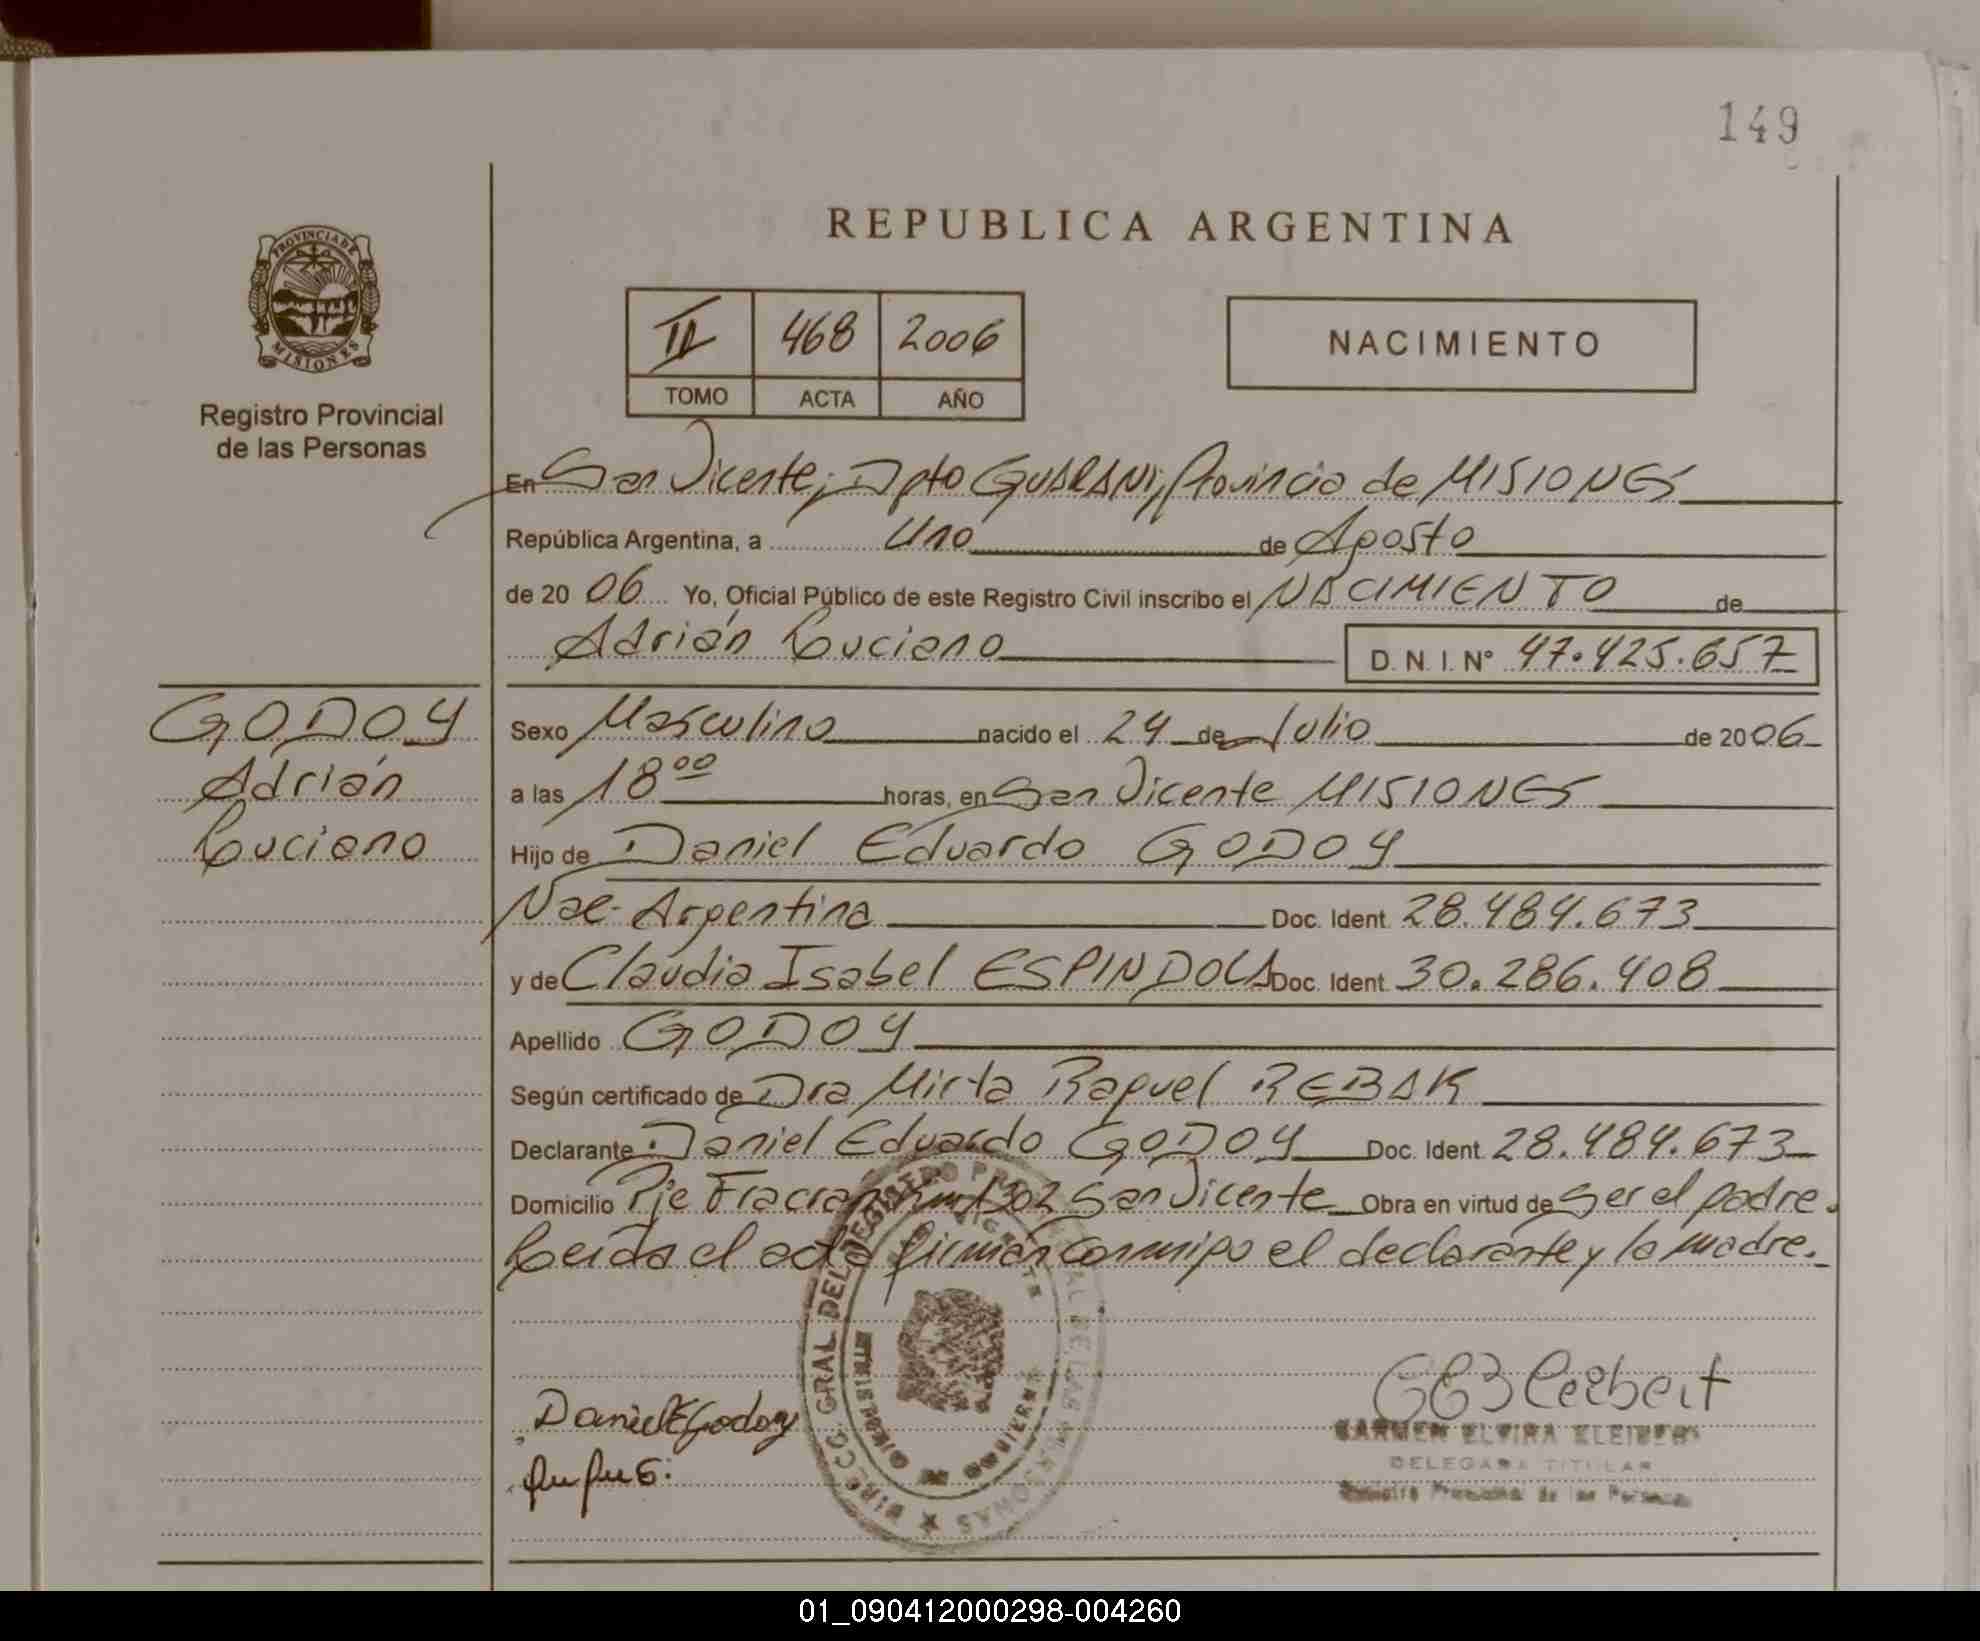 149
REPUBLICA ARGENTINA
PROVINCIA DE
MISIONES
Registro Provincial
de las Personas
II 468 2006
TOMO ACTA AÑO
NACIMIENTO
En San Vicente; Dpto GUARANI; Provincia de MISIONES
República Argentina, a Uno de Agosto
de 20 06 Yo, Oficial Público de este Registro Civil inscribo el NACIMIENTO de
Adrián Luciano D. N. I. Nº 47.425.657
GODOY
Adrián
Luciano
Sexo Masculino nacido el 24 de Julio de 20 06
a las 18 00 horas, en San Vicente MISIONES
Hijo de Daniel Eduardo GODOY
Nac. Argentina Doc. Ident. 28.484.673
y de Claudia Isabel ESPINDOLA Doc. Ident. 30.286.408
Apellido GODOY
Según certificado de Dra Mirta Raquel REBAK
Declarante Daniel Eduardo GODOY Doc. Ident. 28.484.673
Domicilio Pje Fracran 302 San Vicente Obra en virtud de ser el padre.
Leída el acta firman conmigo el declarante y la madre.
Daniel E Godoy
DIRECC. GRAL DEL REGISTRO PROVINCIAL DE LAS PERSONAS
MISIONES
CARMEN ELVIRA
DELEGADA TITULAR
Registro Provincial de las Personas
01_090412000298-004260